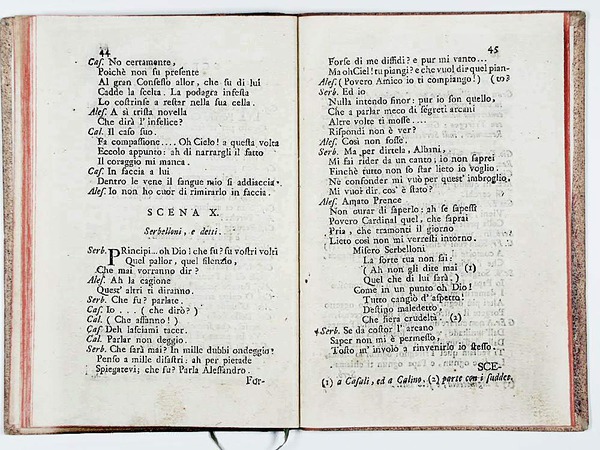 44
Cas. No certamente,
Poichè non fu presente
Al gran Consesso allor, che su di lui
Cadde la scelta. La podagra infesta
Lo costrinse a restar nella sua cella.
Ales. A sì trista novella
Che dirà l' infelice?
Cal. Il caso suo
Fa compassione.... Oh Cielo! a questa volta
Eccolo appunto: ah di narrargli il fatto
Il coraggio mi manca.
Cas. In faccia a lui
Dentro le vene il sangue mio si addiaccia.
Ales. Io non ho cuor di rimirarlo in faccia.
SCENA X.
Serbelloni, e detti.
Serb. Principi... oh Dio! che fu? su vostri volti
Quel pallor, quel silenzio,
Che mai vorranno dir?
Ales. Ah la cagione
Quest' altri ti diranno.
Serb. Che fu? parlate.
Cas. Io... (che dirò?)
Cal. (Che affanno!)
Cas. Deh lasciami tacer.
Cal. Parlar non deggio.
Serb. Che sarà mai? In mille dubbi ondeggio!
Penso a mille disastri: ah per pietade
Spiegatevi; che fu? Parla Alessandro.
For-
45
Forse di me diffidi? e pur mi vanto...
Ma oh Ciel! tu piangi? e che vuol dir quel pian-
Ales. (Povero Amico io ti compiango!) (to?
Serb. Ed io
Nulla intendo finor: pur io son quello,
Che a parlar meco di segreti arcani
Altre volte ti mosse....
Rispondi non è ver?
Ales. Così non fosse.
Serb. Ma per dirtela, Albani,
Mi fai rider da un canto; io non saprei
Finchè tutto non so star lieto io voglio.
Nè confonder mi vuò per quest' imbroglio.
Mi vuoi dir cos' è stato?
Ales. Amato Prence
Non curar di saperlo: ah se sapessi
Povero Cardinal quel, che saprai
Pria, che tramonti il giorno
Lieto così non mi verresti intorno.
Misero Serbelloni
La sorte tua non sai:
(Ah non gli dite mai (1)
Quel che di lui sarà.)
Come in un punto oh Dio!
Tutto cangiò d' aspetto!
Destino maledetto,
Che fiera crudeltà. (2)
Serb. Se da costor l' arcano
Saper non mi è permesso,
Tosto m' involo a rinvenirlo io stesso.
SCE-
(1) a Casali, ed a Calino. (2) parte con i suddet.